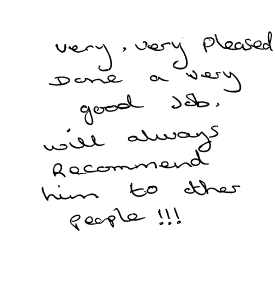 very, very pleased
Done a very
good Job.
will always
Recommend
him to other
people !!!